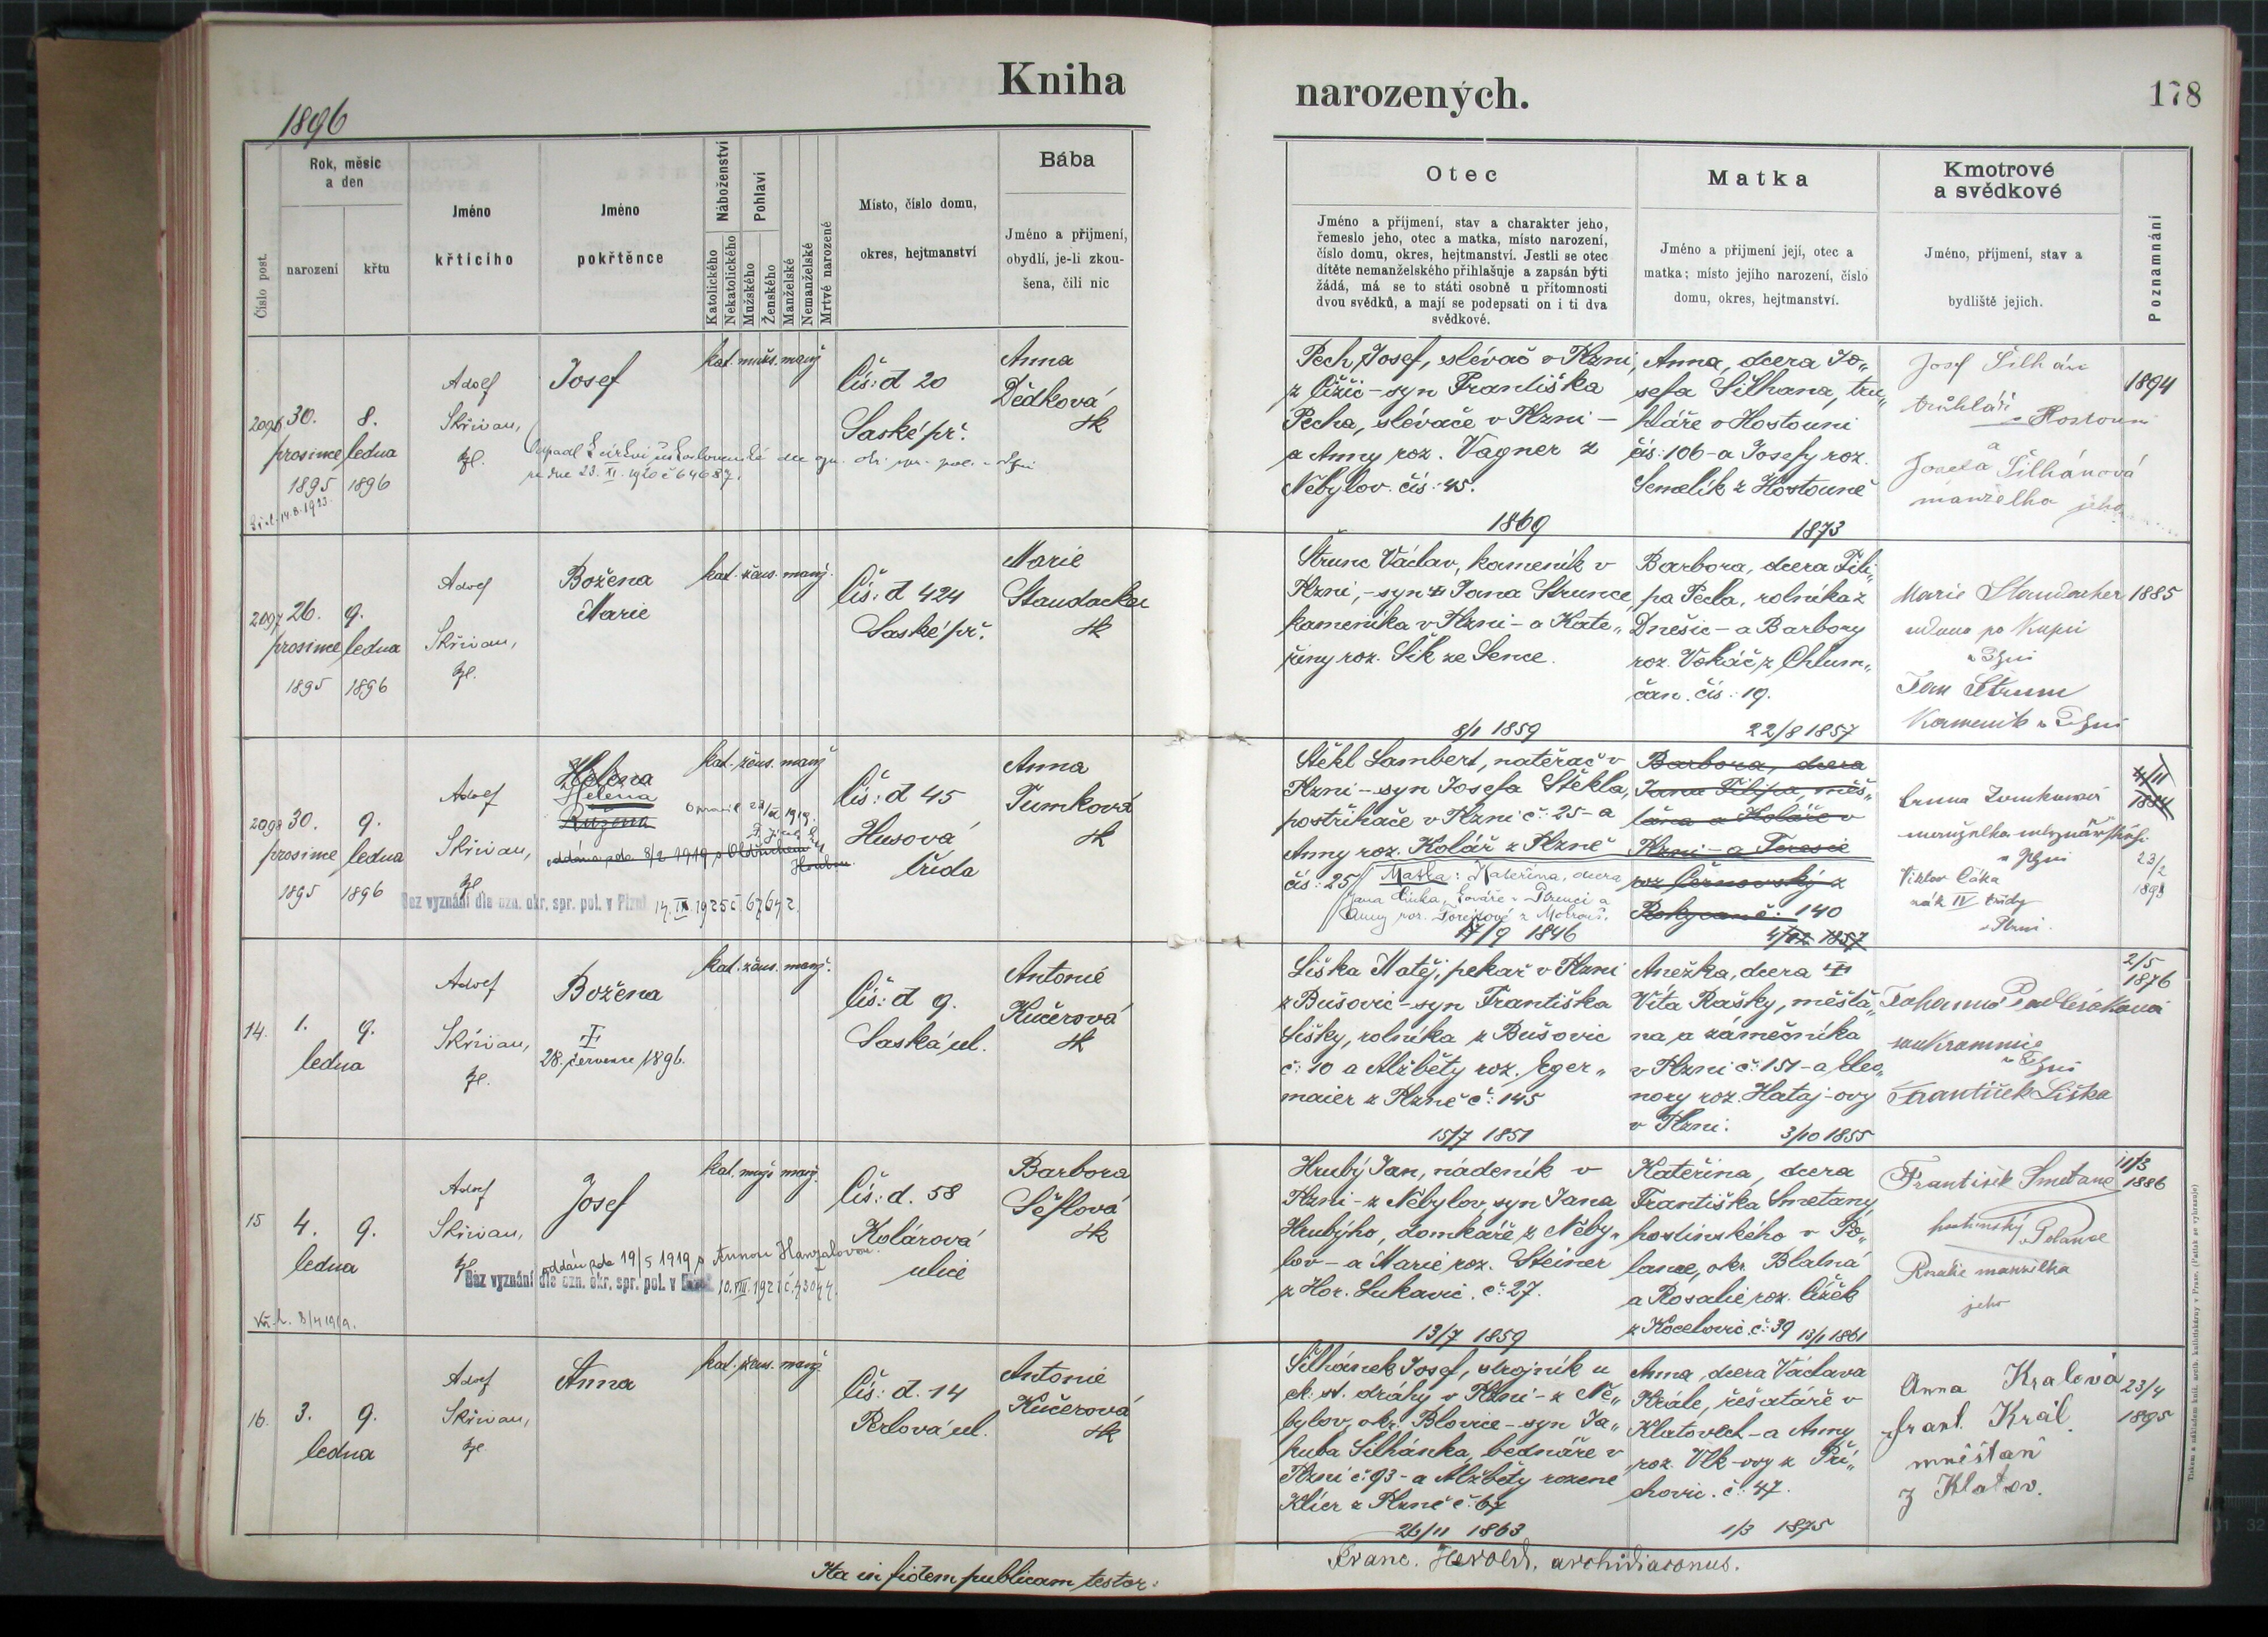 Kniha narozených.
178
1896
Číslo post.
Rok, měsíc
a den
narození
křtu
Jméno
křticího
Jméno
pokřtěnce
Náboženství
Katolického
Nekatolického
Pohlaví
Mužského
Ženského
Manželské
Nemanželské
Mrtvě narozené
Místo, číslo domu,
okres, hejtmanství
Bába
Jméno a příjmení,
obydlí, je-li zkou-
šena, čili nic
Otec
Jméno a příjmení, stav a charakter jeho,
řemeslo jeho, otec a matka, místo narození,
číslo domu, okres, hejtmanství. Jestli se otec
dítěte nemanželského přihlašuje a zapsán býti
žádá, má se to státi osobně u přítomnosti
dvou svědků, a mají se podepsati on i ti dva
svědkové.
Matka
Jméno a příjmení její, otec a
matka; místo jejího narození, číslo
domu, okres, hejtmanství.
Kmotrové
a svědkové
Jméno, příjmení, stav a
bydliště jejich.
Poznamnání
2096
30.
prosince
1895
8.
ledna
1896
Adolf
Skřivan,
Josef
kat. muž. manž
Čís: d 20
Saské př.
Anna
Dědková
zk
Pech Josef, slévač v Plzni,
z Čížic - syn Františka
Pecha, slévače v Plzni -
a Anny roz. Vagner z
Nebylov. čís: 45.
1869
Anna, dcera Jo„
sefa Šilhana, tru„
hláře v Hostouni
čís: 106 - a Josefy roz.
Semelík z Hostouně
1873
Josef Šilhán
truhlář
v Hostouni
a
Josefa Šilhánová
manželka jeho
1894
2097
26.
prosince
1895
9.
ledna
1896
Adolf
Skřivan,
Božena
Marie
kat. žens. manž.
Čís: d 424
Saské př.
Marie
Staudacher
zk
Strunc Václav, kameník v
Plzni, - syn Jana Strunce
kameníka v Plzni - a Kate„
řiny roz. Šik ze Sence.
8/1 1859
Barbora, dcera Fili„
pa Pecla, rolníka z
Dnešic - a Barbory
roz. Vokáč z Chlum„
čan. čís: 19.
22/8 1857
Marie Staudacher
vdova po kupci
v Plzni
Jan Strunc
Kameník v Plzni
1885
2098
30.
prosince
1895
9.
ledna
1896
Adolf
Skřivan,
Helena
Helena
Růžena
kat. žens. manž
oddána pda 8/2 1919 s Oldřichem
Bez vyznání dle ozn. okr. spr. pol. v Plzni 14. IX. 1925 č 67642.
Čís: d 45
Husová
třída
Anna
Tumková
zk
Štěkl Lambert, natěrač v
Plzni - syn Josefa Štěkla,
postřihače v Plzni č: 25 - a
Anny roz. Kolář z Plzně
čís: 25
Matka: Kateřina, dcera
17/9 1846
Barbora, dcera
Jana Filipa, měš„
ťana a Koláře v
Plzni - a Teresie
roz Černovský z
Rokycan č: 140
4/12 1857
v Plzni
IV třídy
v Plzni.
4/11
1884
23/2
14.
1.
ledna
9.
Adolf
Skřivan,
Božena
28. července 1896.
kat. žens. manž.
Čís: d 9.
Saská ul.
Antonie
Kučerová
zk
Liška Matěj, pekař v Plzni
z Bušovic - syn Františka
Lišky, rolníka z Bušovic
č: 10 a Alžběty roz. Eger„
maier z Plzně č: 145
15/7 1851
Anežka, dcera
Víta Rašky, měšťa„
na a zámečníka
v Plzni č: 151 - a Eleo„
nory roz. Hataj-ovy
v Plzni.
3/10 1855
v Plzni
František Liška
2/5
1876
15
4.
ledna
9.
Adolf
Skřivan,
Josef
kat. muž. manž.
oddán pda 19/5 1919 s Annou Hanzalovou.
Bez vyznání dle ozn. okr. spr. pol. v Plzni 10. VIII. 1921 č. 43044.
Čís: d. 58
Kolárová
ulice
Barbora
Šeflová
zk
Hrubý Jan, nádeník v
Plzni - z Nebylov, syn Jana
Hrubýho, domkáře z Neby„
lov - a Marie roz. Steiner
z Hor. Lukavic. č: 27.
13/7 1859
Kateřina, dcera
Františka Smetany
hostinského v Po„
lance, okr. Blatná
a Rosalie roz. Čížek
z Kocelovic č: 39 13/1 1861
František Smetana
hostinský v Polance
Rosalie manželka
jeho
11/3
1886
16.
3.
ledna
9.
Adolf
Skřivan,
Anna
kat. žens. manž
Čís: d. 14
Perlová ul.
Antonie
Kučerová
zk
Šilhánek Josef, strojník u
ck. st. dráhy v Plzni - z Ne„
bylov, okr. Blovice - syn Ja„
kuba Šilhánka, bednáře v
Plzni č: 93 - a Alžběty rozené
Klier z Plzně č: 67
26/11 1863
Anna, dcera Václava
Krále, řešetáře v
Klatovech - a Anny
roz. Vlk-ovy z Při„
chovic. č: 47.
1/3 1875
Anna Kralová
frant. Král
měšťan
z Klatov.
23/4
1895
Ita in fidem publicam testor:
Franc. Herold, archidiaconus.